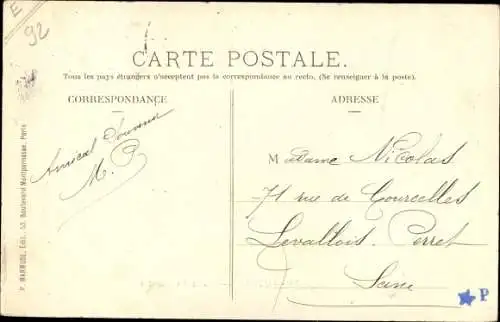 E
92
CARTE POSTALE.
Tous les pays étrangers n'acceptent pas la correspondance au recto. (Se renseigner à la poste).
CORRESPONDANCE
ADRESSE
Amical Souvenir
M. P.
Madame Nicolas
71 rue de Courcelles
Levallois. Perret
Seine
P. MARMUSE, Edit., 53, Boulevard Montparnasse, Paris
P